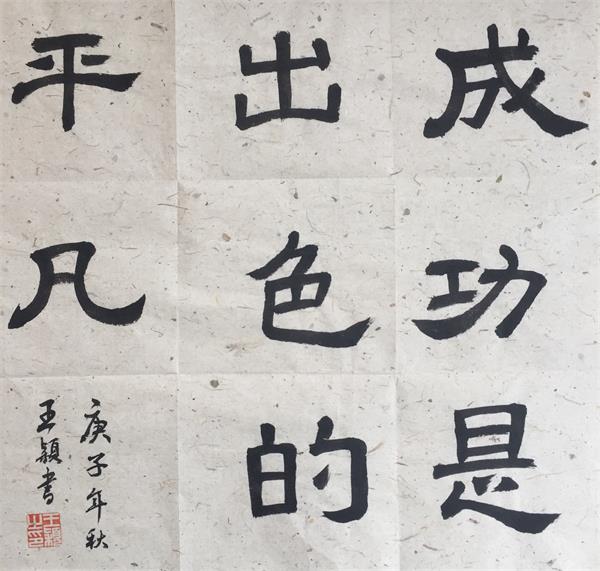 成功是
出色的
平凡
庚子年秋
王颖書
王颖之印